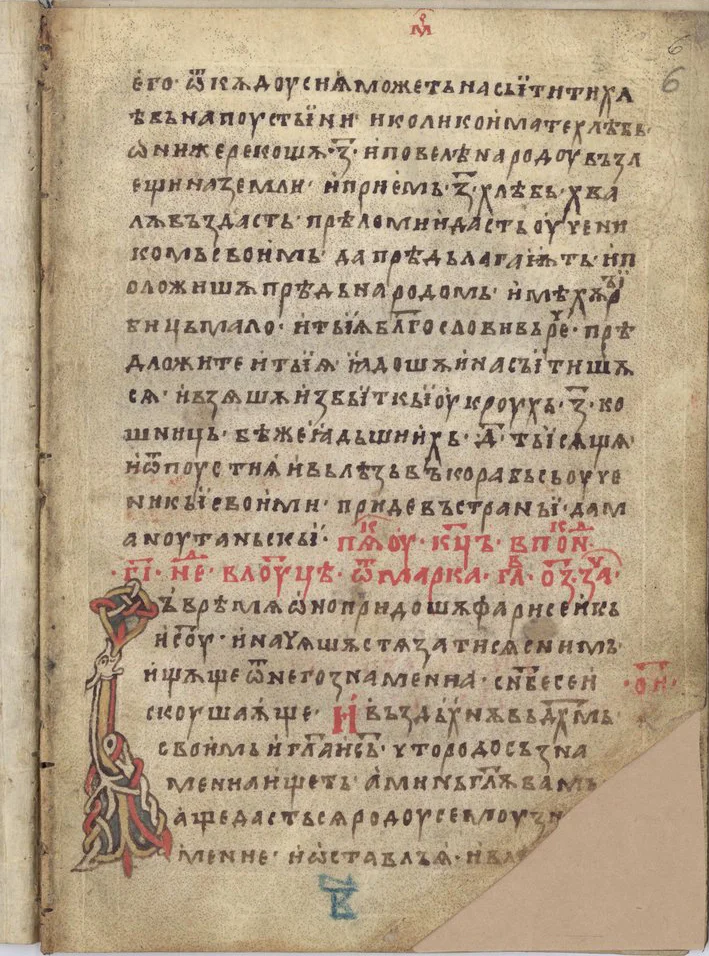 м҃
6
6
его· ѿкѫдоу снѧ можетъ насыїтити хл
ѣвъ на поустыїни· и колико имате хлѣбъ·
ѡни же рекошѧ·з҃· и повелѣ народоу възл
ещи на земли· и приемь·з҃·хлѣбъ·хва
лѫ въздасть· прѣломи и дасть оучени
комъ своимь· да прѣдълагаѭть· и п
оложишѧ прѣдъ народомь· имѣхѫ ръїї
бицъ мало· и тыїѧ бл҃гословивъ рече· прѣ
дложите и тыїѧ· ꙗдошѧ и насыїтишѧ
сѧ· и взѧшѧ избыїткыї оукроухъ·з҃·ко
шницъ· бѣ же ꙗдъшиихъ·д҃·тыїсѧщѧ·
и ѿпоусти ѧ и вълѣзъ въ корабъ съ оуче
никыї своими· приде въ страныї дам
аноутаньскыї· пѧ҃коу· кц҃ъ· в пон҃·
·гі҃· нед҃е· в лоуцѣ· ѿ марка· гл҃· оз҃ за҃ч·
ъ врѣмѧ ѡно придошѧ фарисеи къ
іс҃оу· и начѧшѧ стѧзатисѧ с нимь·
ищѫще ѿ него знамениа· с нб҃есе и
скоушаѧще· И въздъхнѫвъ дх҃мь·
·ои҃·
своимь и гл҃а ис҃ъ· что родосъ зна
мениа ищеть· аминь гл҃ѭ вамъ
аще дастьсѧ родоу семоу зн
мение· и ѡставль ѧ· и вл